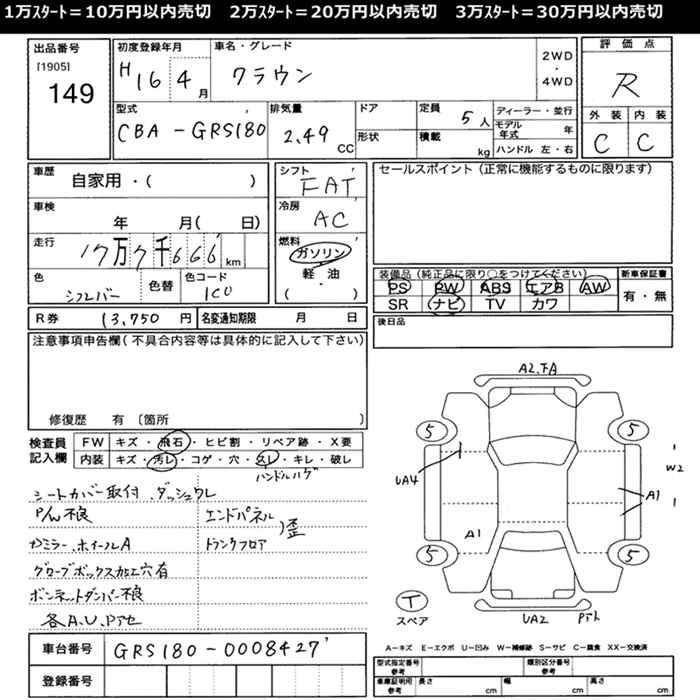 1万ｽﾀｰﾄ＝10万円以内売切　2万ｽﾀｰﾄ＝20万円以内売切　3万ｽﾀｰﾄ＝30万円以内売切
出品番号
[1905]
149
初度登録年月
H16 4月
車名・グレード
クラウン
2WD
・
4WD
評価点
R
外装 内装
C C
型式
CBA-GRS180
排気量
2.49 CC
ドア
形状
定員
5人
積載
kg
ディーラー・並行
モデル年式 年
ハンドル 左・右
車歴
自家用・( )
車検
年 月( 日)
走行
17万7千666 km
色
シルバー
色替
色コード
1C0
シフト
FAT
冷房
AC
燃料
ガソリン
・
軽・油
( )
セールスポイント(正常に機能するものに限ります)
装備品(純正品に限り○をつけてください)
PS PW ABS エアB AW
SR ナビ TV カワ
新車保証書
有・無
R券 13,750円
名変通知期限 月 日
後日品
注意事項申告欄(不具合内容等は具体的に記入して下さい)
修復歴 有 〔箇所
検査員記入欄
FW キズ・飛石・ヒビ割・リペア跡・X要
内装 キズ・汚レ・コゲ・穴・久レ・キレ・破レ
ハンドルハゲ
シートカバー取付 ダッシュワレ
P/W不良 エンドパネル
歪
カミラー、ホイールA トランクフロア
グローブボックス加工穴有
ボンネットダンパー不良
各A,U,Pアセ
車台番号 GRS180-0008427
登録番号
A2,FA
5 5
UA4
W2
A1
A1
5 5
T
スペア
UA2 Pアト
A－キズ E－エクボ U－凹み W－補修跡 S－サビ C－腐食 XX－交換済
型式指定番号 参考
類別区分番号 参考
車庫証明用 参考 長さ cm 幅 cm 高さ cm